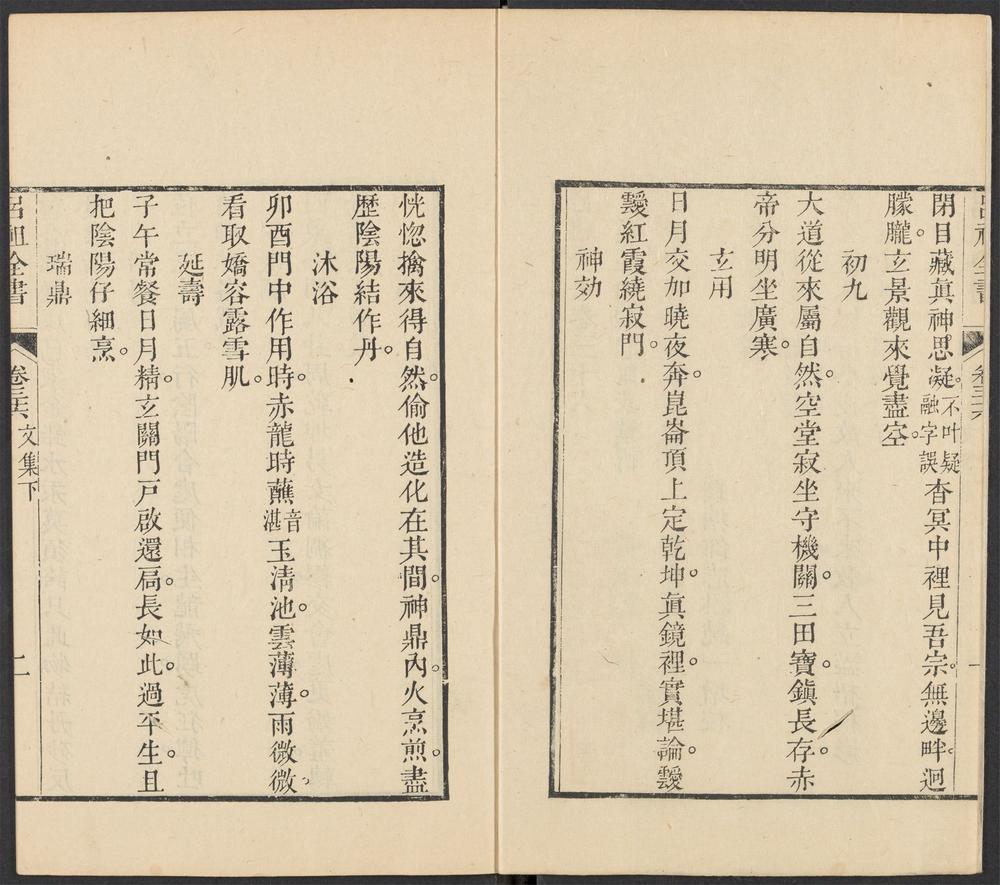 呂祖全書 卷三六 一
閉目藏眞神思凝。不叶疑融字誤杳冥中裡見吾宗。無邊畔。迥
朦朧。玄景觀來覺盡空。
初九
大道從來屬自然。空堂寂坐守機關。三田寶鎭長存。赤
帝分明坐廣寒。
玄用
日月交加曉夜奔。崑崙頂上定乾坤。眞鏡裡。實堪論。靉
靉紅霞繞寂門。
神効
恍惚擒來得自然。偷他造化在其間。神鼎內。火烹煎。盡
歷陰陽結作丹。
沐浴
卯酉門中作用時。赤龍時蘸音湛玉淸池。雲薄薄。雨微微。
看取嬌容露雪肌。
延壽
子午常餐日月精。玄關門戸啟還扃。長如此。過平生。且
把陰陽仔細烹。
瑞鼎
呂祖全書 卷三六 文集下 二